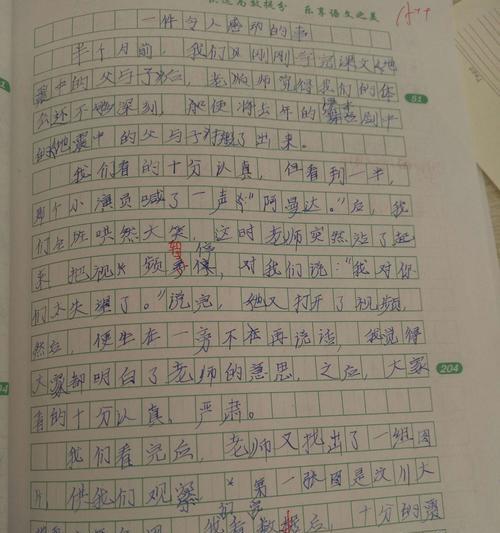 快速高效提分 乐享语文之美
一件令人感动的事
半个月前，我们刚刚学完课文《地
震中的父与子》后，老师觉得我们的体
会还不够深刻，便将去年的课本剧中
的《地震中的父与子》找了出来。
我们看的十分认真，但看到一半，
那个小演员喊了一声“阿曼达。”后，我
们全班哄然大笑，这时老师突然站了起
来 把视频暂停，对我们说：“我对你
们太失望了。”说完，她又打开了视频，
然后，便坐在一旁不在再说话，我觉得
大家都明白了老师的意思，之后，大家
看的十分认真、严肃。
204
我们看完后，老师又找出了一组图
片，供我们观察。第一张图是汶川大
我看数据后，十分的震